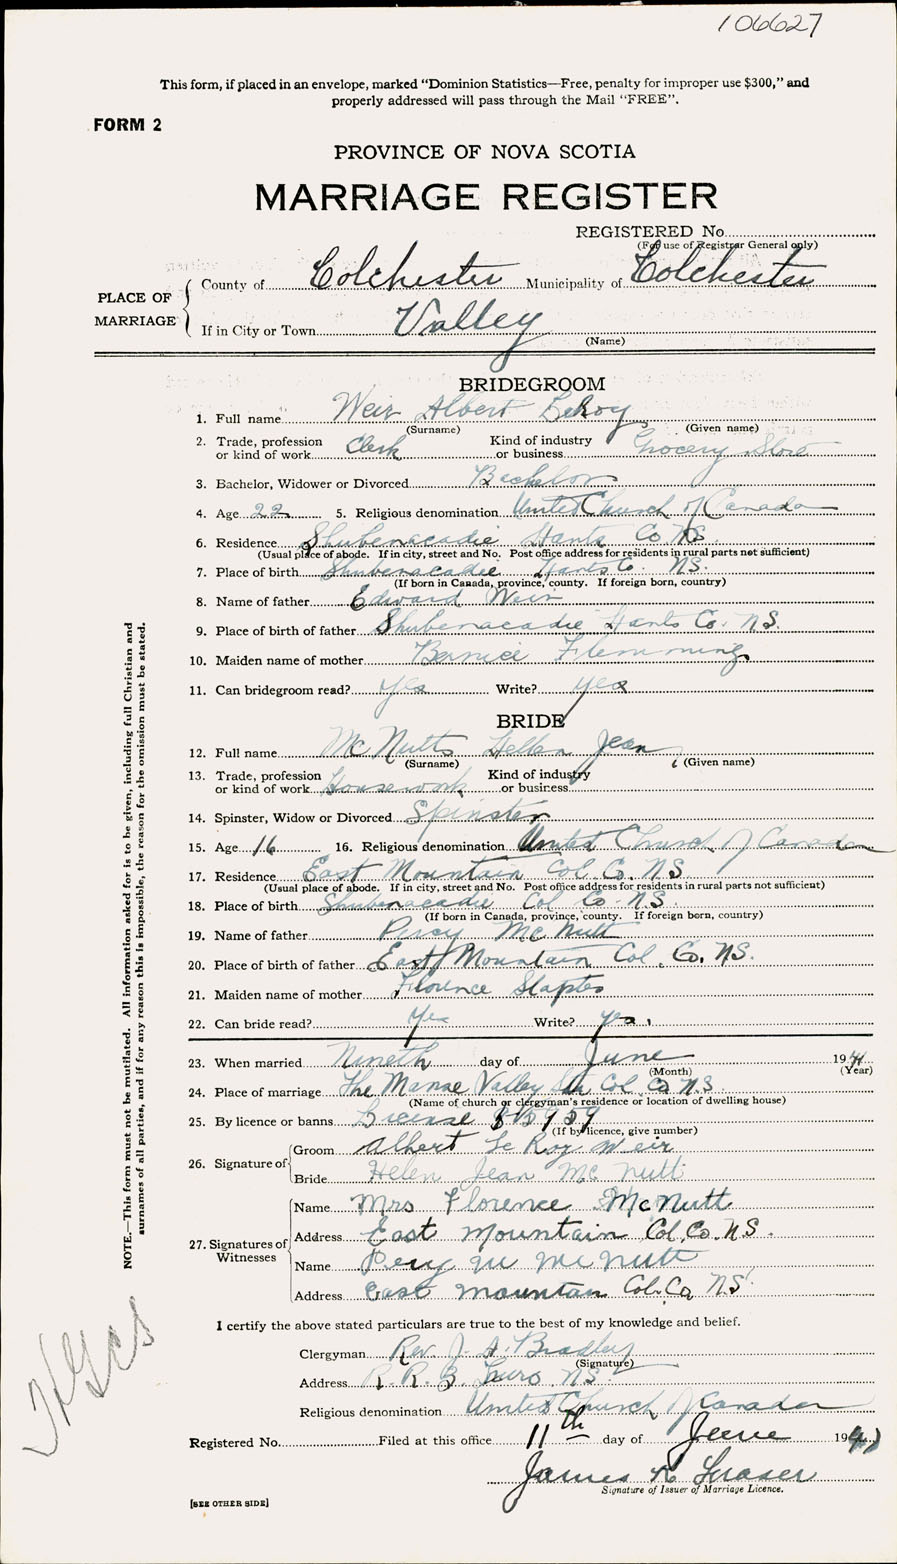 106627
This form, if placed in an envelope, marked "Dominion Statistics—Free, penalty for improper use $300," and
properly addressed will pass through the Mail "FREE".
FORM 2
PROVINCE OF NOVA SCOTIA
MARRIAGE REGISTER
REGISTERED No.
(For use of Registrar General only)
PLACE OF MARRIAGE
County of Colchester Municipality of Colchester
If in City or Town Valley
(Name)
BRIDEGROOM
1. Full name Weir Albert LeRoy
(Surname) (Given name)
2. Trade, profession or kind of work Clerk Kind of industry or business Grocery Store
3. Bachelor, Widower or Divorced Bachelor
4. Age 22 5. Religious denomination United Church of Canada
6. Residence Shubenacadie Hants Co NS
(Usual place of abode. If in city, street and No. Post office address for residents in rural parts not sufficient)
7. Place of birth Shubenacadie Hants Co. NS.
(If born in Canada, province, county. If foreign born, country)
8. Name of father Edward Weir
9. Place of birth of father Shubenacadie Hants Co. NS.
10. Maiden name of mother Bernice Flemming
11. Can bridegroom read? Yes Write? yes
BRIDE
12. Full name McNutt Hellen Jean
(Surname) (Given name)
13. Trade, profession or kind of work Housework Kind of industry or business
14. Spinster, Widow or Divorced Spinster
15. Age 16 16. Religious denomination United Church of Canada
17. Residence East Mountain Col. Co. N.S
(Usual place of abode. If in city, street and No. Post office address for residents in rural parts not sufficient)
18. Place of birth Shubenacadie Col Co N.S.
(If born in Canada, province, county. If foreign born, country)
19. Name of father Percy McNutt
20. Place of birth of father East Mountain Col. Co. NS.
21. Maiden name of mother Florence Staples
22. Can bride read? Yes Write? Yes.
23. When married Nineth day of June 1941
(Month) (Year)
24. Place of marriage The Manse Valley Col Co N.S.
(Name of church or clergyman's residence or location of dwelling house)
25. By licence or banns License
(If by licence, give number)
26. Signature of
Groom Albert Le Roy Weir
Bride Helen Jean McNutt
27. Signatures of Witnesses
Name Mrs Florence McNutt
Address East Mountain Col. Co. N.S.
Name McNutt
Address East Mountan Col. Co N.S.
I certify the above stated particulars are true to the best of my knowledge and belief.
Clergyman Rev. J. A. Bradley
(Signature)
Address R. R. 3. Truro. NS.
Religious denomination United Church of Canada
Registered No. Filed at this office 11th day of June 1941
James R Fraser
Signature of Issuer of Marriage Licence.
[SEE OTHER SIDE]
NOTE.—This form must not be mutilated. All information asked for is to be given, including full Christian and
surnames of all parties, and if for any reason this is impossible, the reason for the omission must be stated.